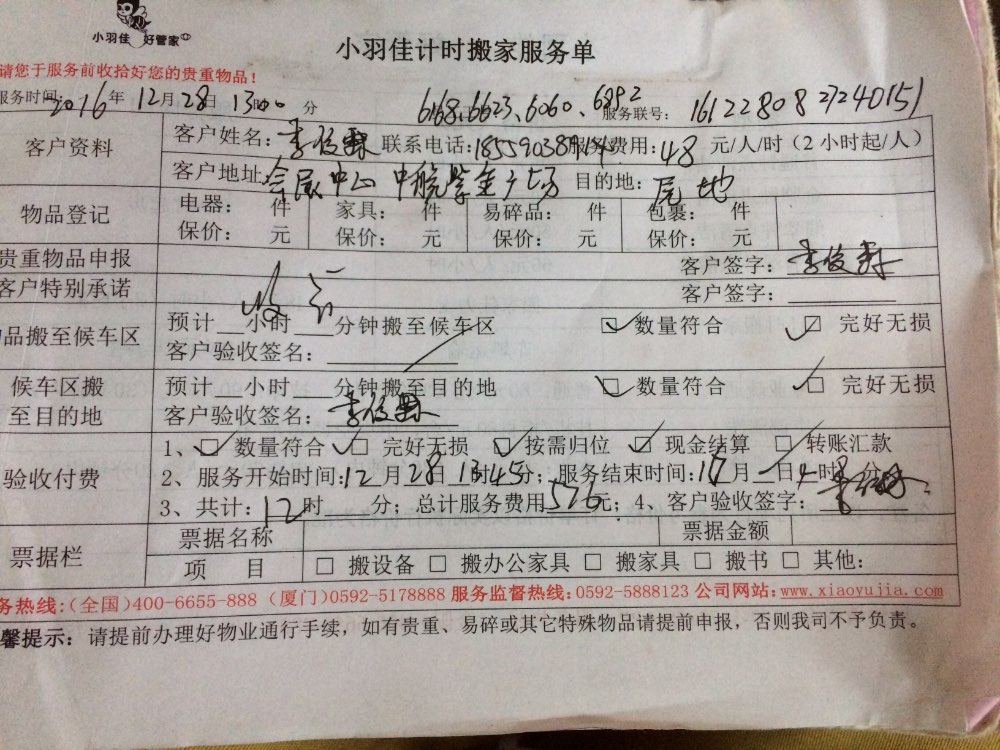 小羽佳 好管家
小羽佳计时搬家服务单
请您于服务前收拾好您的贵重物品！
服务时间：2016年12月28日13时00分 6168、6623、6060、6892 服务联号：1612280827240151
客户资料
客户姓名： 联系电话：18559038 服务费用：48元/人/时（2小时起/人）
客户地址：会展中山 中航紫金广场 目的地：尾地
物品登记
电器： 件 家具： 件 易碎品： 件 包裹： 件
保价： 元 保价： 元 保价： 元 保价： 元
贵重物品申报 客户签字：
客户特别承诺 客户签字：
物品搬至候车区
预计 小时 分钟搬至候车区 数量符合 完好无损
客户验收签名：
候车区搬至目的地
预计 小时 分钟搬至目的地 数量符合 完好无损
客户验收签名：
验收付费
1、 数量符合 完好无损 按需归位 现金结算 转账汇款
2、服务开始时间：12月28日13时45分；服务结束时间：17月 日 时 分
3、共计：12时 分；总计服务费用576元；4、客户验收签字：
票据栏
票据名称 票据金额
项 目 搬设备 搬办公家具 搬家具 搬书 其他：
务热线：(全国)400-6655-888 (厦门)0592-5178888 服务监督热线：0592-5888123 公司网站：www.xiaoyujia.com
馨提示：请提前办理好物业通行手续，如有贵重、易碎或其它特殊物品请提前申报，否则我司不予负责。